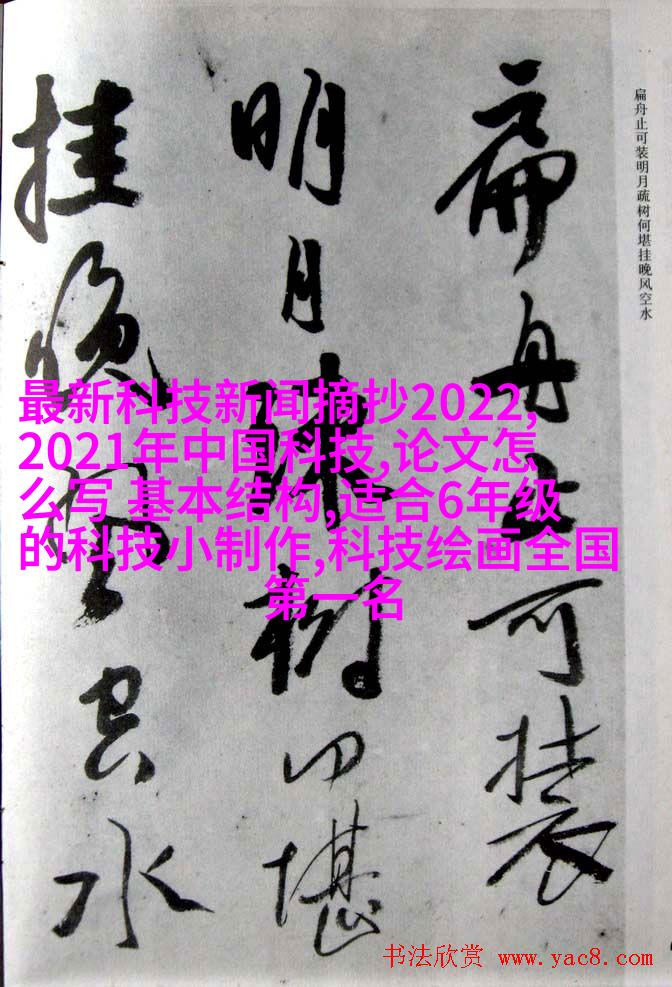 扁舟止可装
明月疏树何堪
挂晚风空水
扁舟止可装明月疏树何堪挂晚风空水
最新科技新闻摘抄2022,
2021年中国科技,论文怎
么写 基本结构,适合6年级
的科技小制作,科技绘画全国
第一名
书法欣赏 www.yac8.com